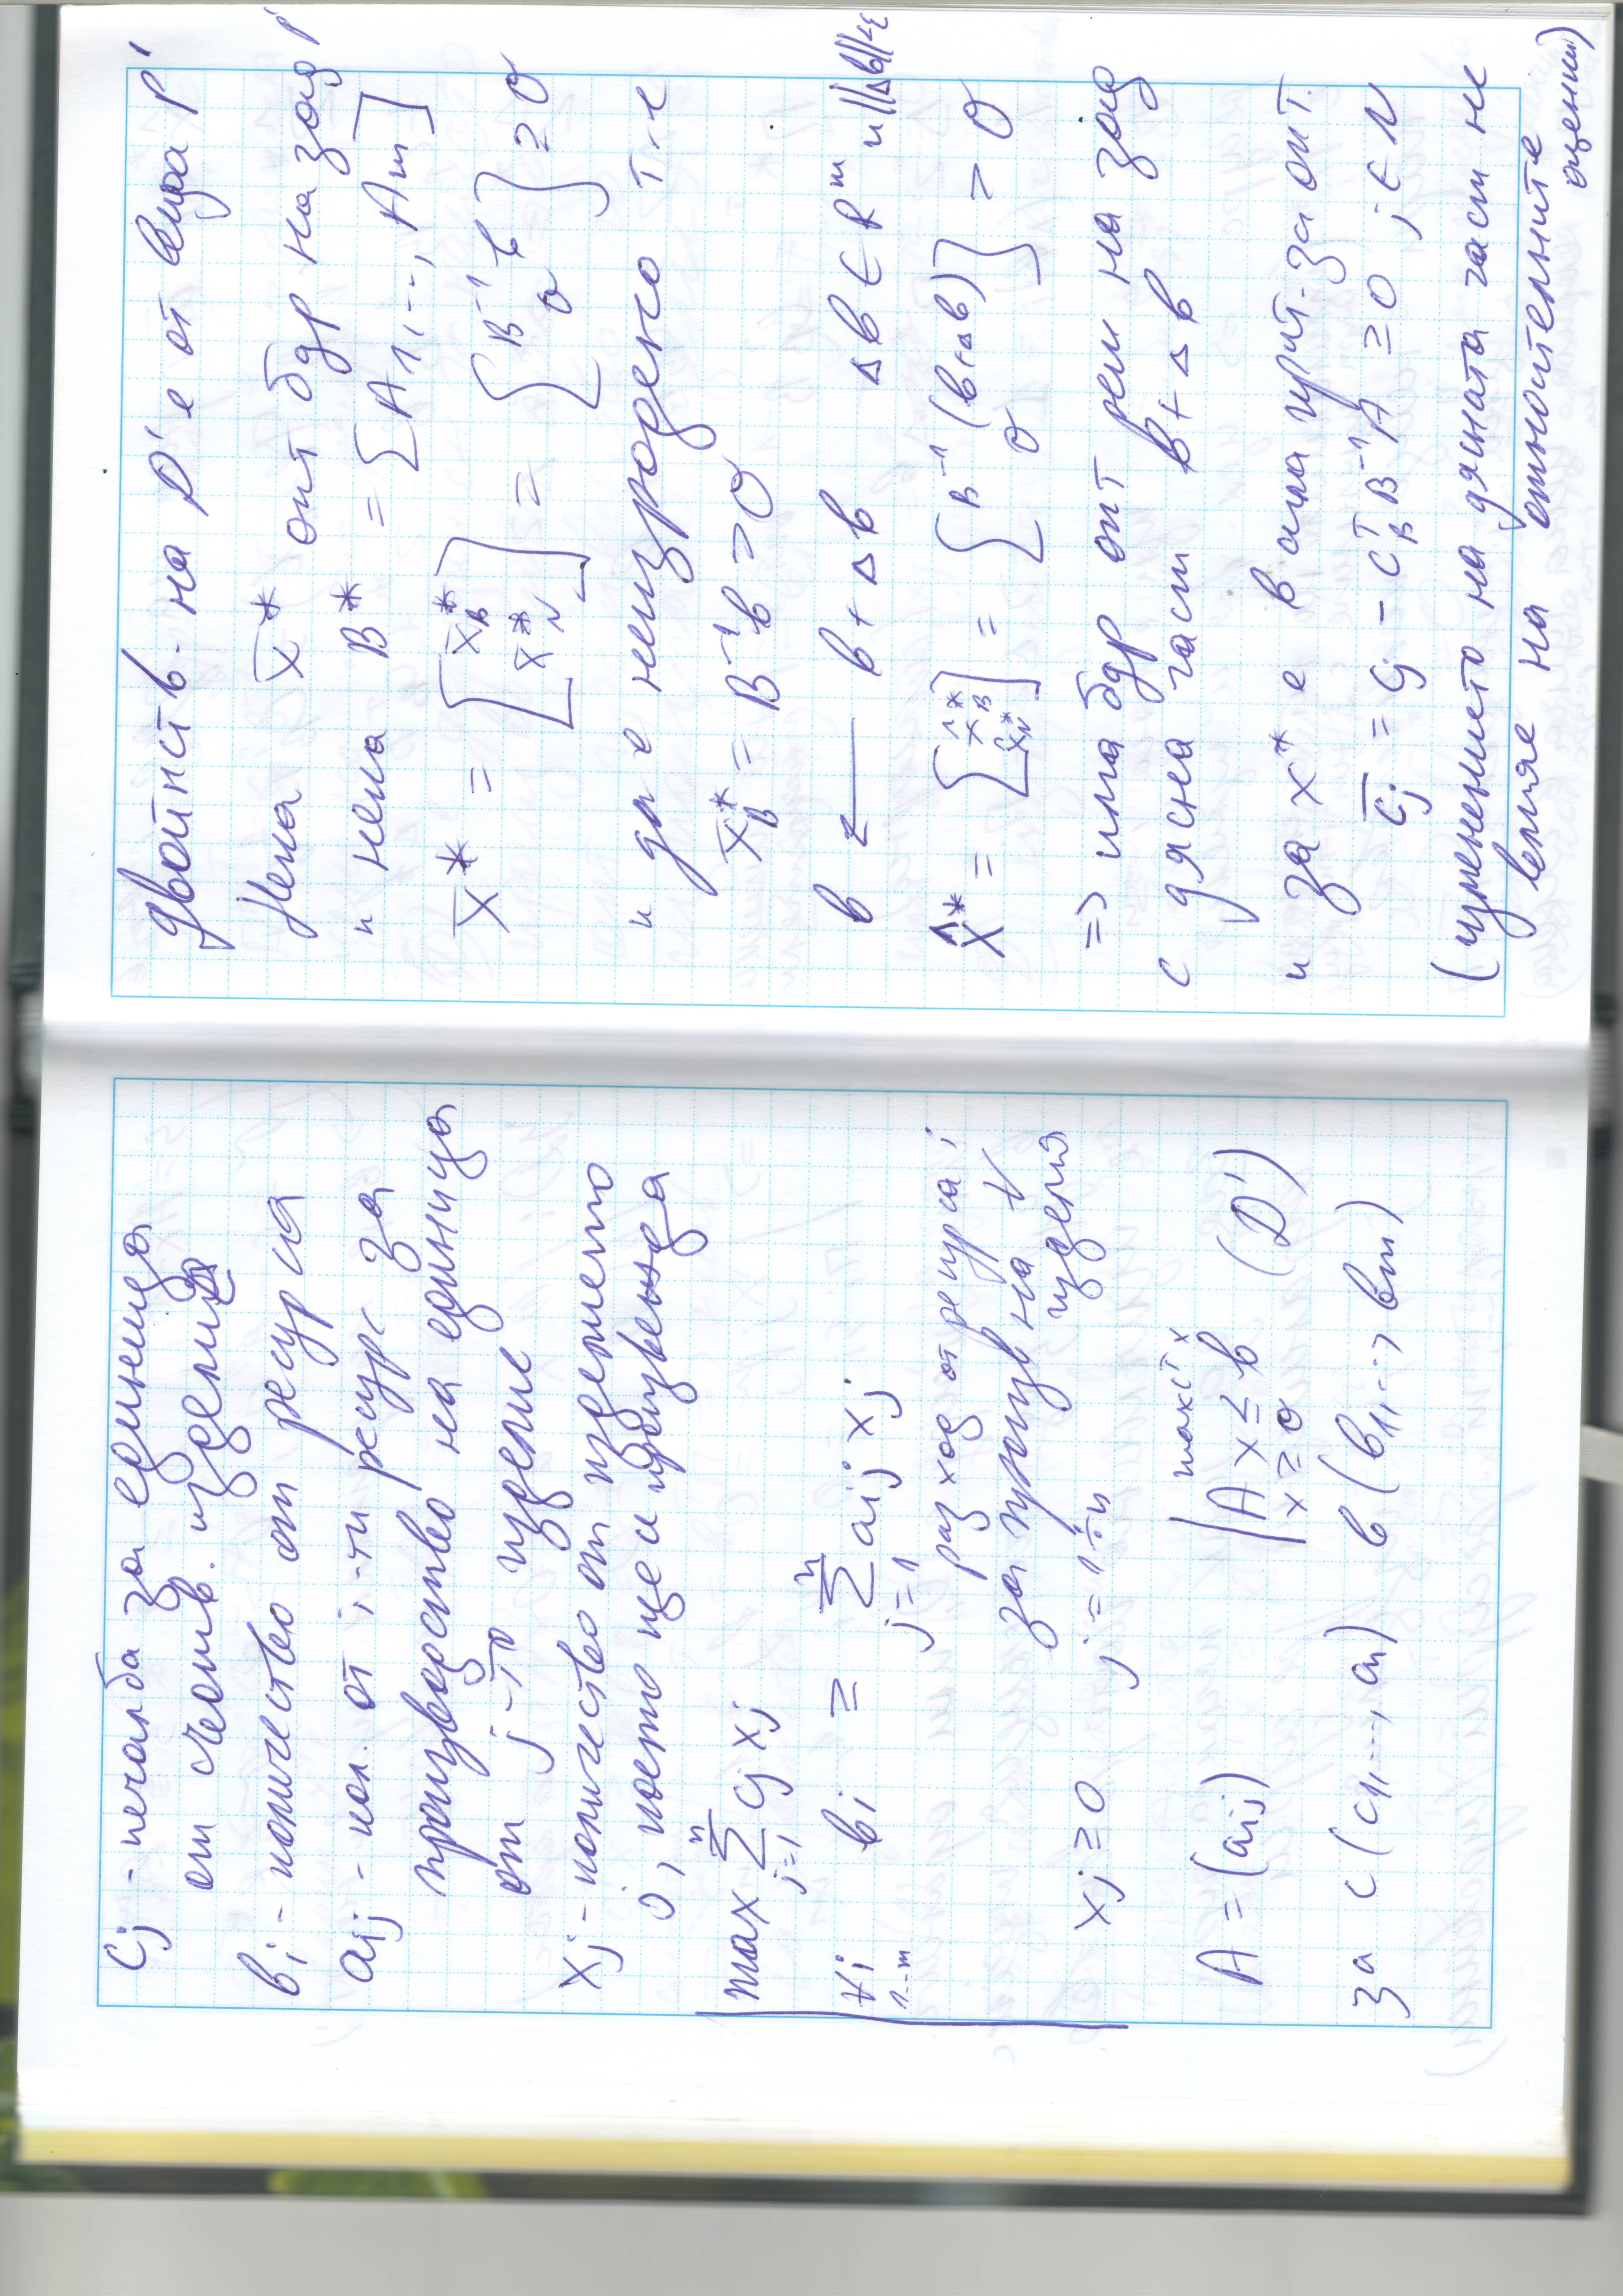 cj - печалба за единица
от съотв. изделия
bi - количество от ресурса
aij - кол. от i-ти ресурс за
производство на единица
от j-то изделие
xj - количество от изделието
j, което ще се произвежда
max Σ_{j=1}^{n} cj xj
∀i 1--m bi ≥ Σ_{j=1}^{n} aij xj
разход от ресурса i
за произв на ∀
изделия
xj ≥ 0 j = 1÷n
max cᵀx
A = (aij) | Ax ≤ b (D')
x ≥ 0
за c (c1, ..., cn) b (b1, ..., bm)
двойств. на D' е от вида P'
Нека x̄* опт бдр на зад P'
и нека B* = [A1, ..., Am]
x̄* = [x̄B* x̄N*] = [B⁻¹b 0] ≥ 0
и др е неизродено т.е
x̄B* = B⁻¹b > 0
b ← b + Δb Δb ∈ Rᵐ и ||Δb|| < ε
x̂* = [x̂B* x̂N*] = [B⁻¹(b+Δb) 0] > 0
=> има бдр опт реш на зад
с дясна част b + Δb
и за x* е в сила крит. за опт.
c̄j = cj - cBᵀ B⁻¹A ≥ 0 j ∈ N
(изменението на дясната част не
влияе на относителните
оценки)